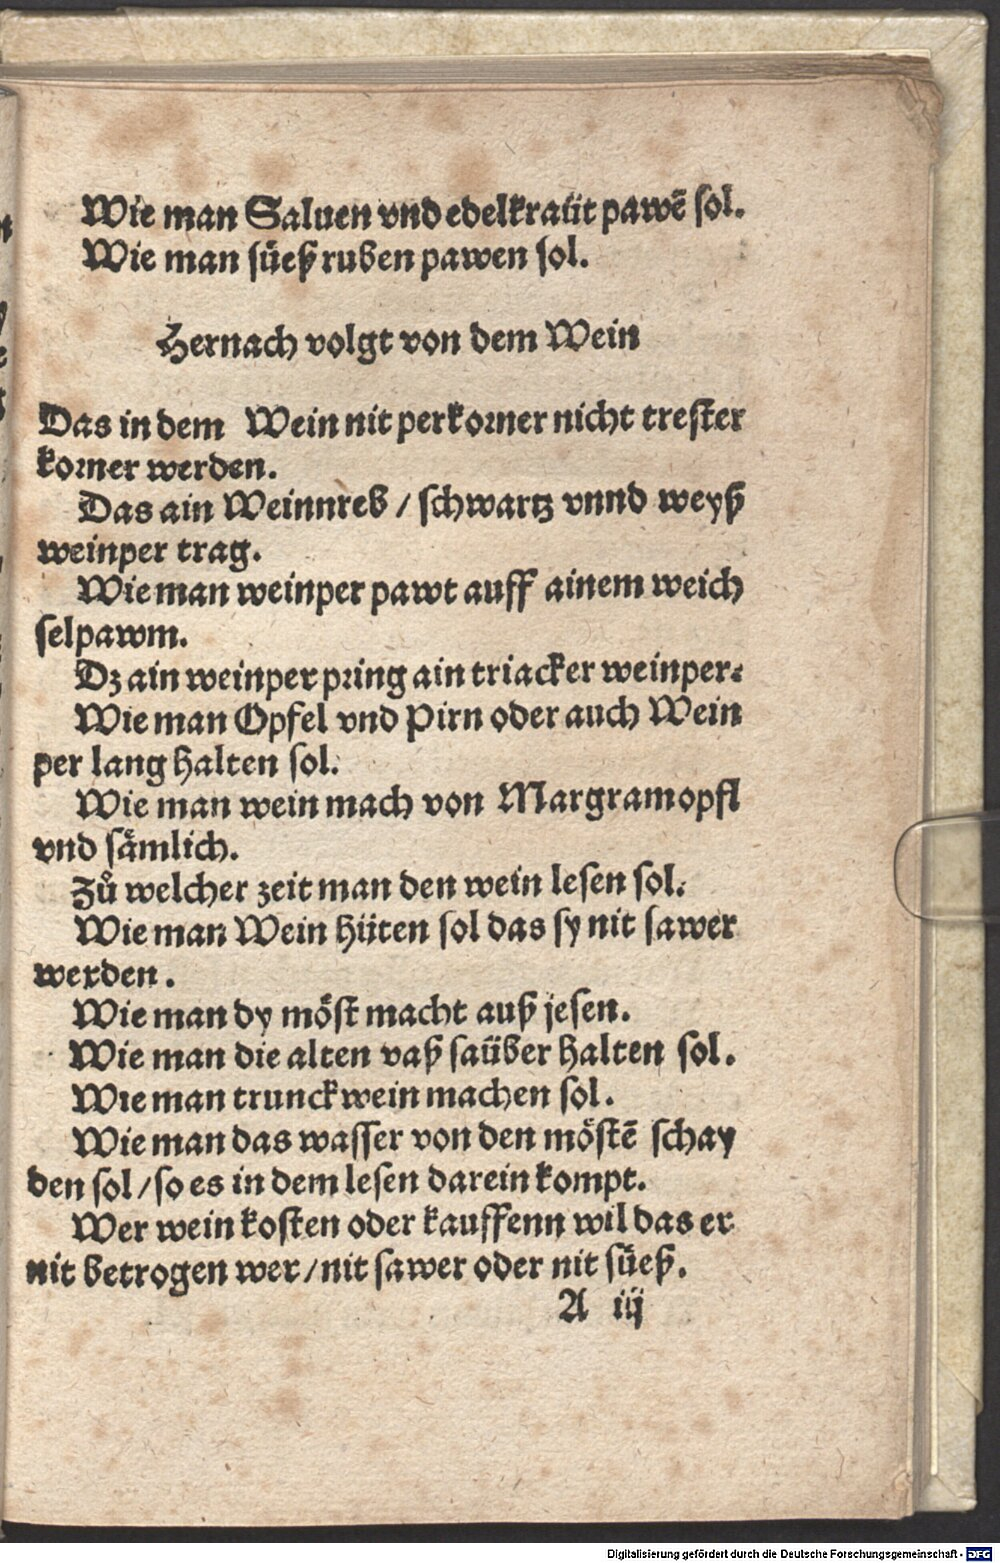 Wie man Saluen vnd edelkraüt pawē sol.
Wie man süeß ruben pawen sol.
Hernach volgt von dem Wein
Das in dem Wein nit perkorner nicht trester
korner werden.
Das ain Weinnreb / schwartz vnnd weyß
weinper trag.
Wie man weinper pawt auff ainem weich
selpawm.
Dz ain weinper pring ain triacker weinper.
Wie man Opfel vnd Pirn oder auch Wein
per lang halten sol.
Wie man wein mach von Margramopfl
vnd sämlich.
Zů welcher zeit man den wein lesen sol.
Wie man Wein hüten sol das sy nit sawer
werden.
Wie man dy möst macht auß jesen.
Wie man die alten vaß saüber halten sol.
Wie man trunck wein machen sol.
Wie man das wasser von den möstē schay
den sol / so es in dem lesen darein kompt.
Wer wein kosten oder kauffenn wil das er
nit betrogen wer / nit sawer oder nit süeß.
A iij
Digitalisierung gefördert durch die Deutsche Forschungsgemeinschaft - DFG